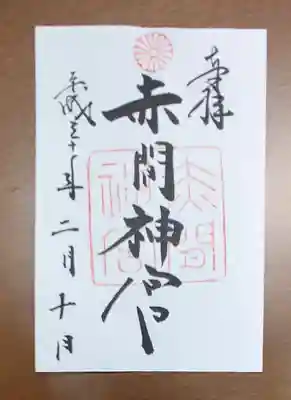 奉拝
赤間神宮
平成三十年二月十日
赤間
神宮